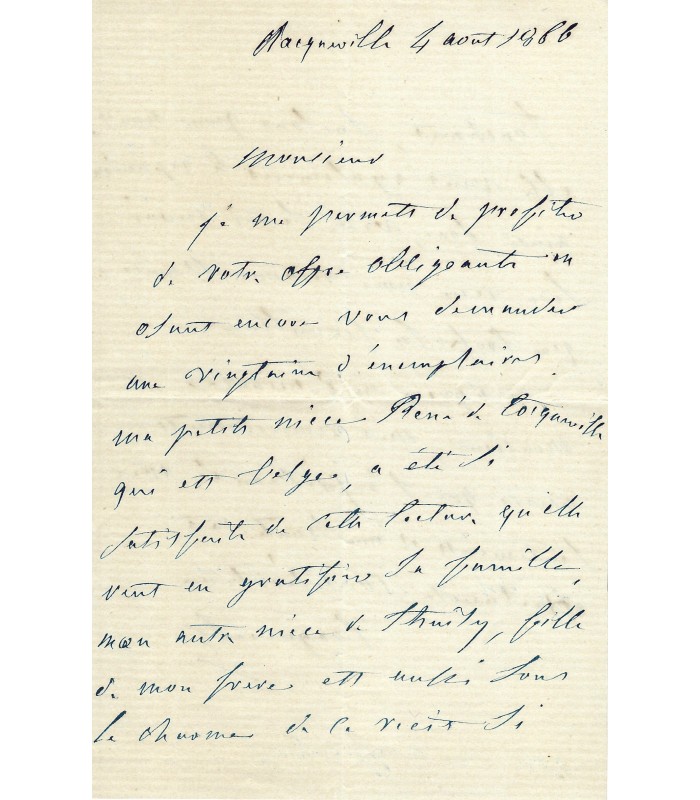 Nacqueville 4 août 1866
Monsieur
je me permets de profiter
de votre offre obligeante en
osant encore vous demander
une vingtaine d'exemplaires.
ma petite nièce René de Tocqueville
qui est belge, a été si
satisfaite de cette lecture qu'elle
veut en gratifier sa famille,
mon autre nièce de Thuisy, fille
de mon frère est aussi sous
le charme de ce récit si